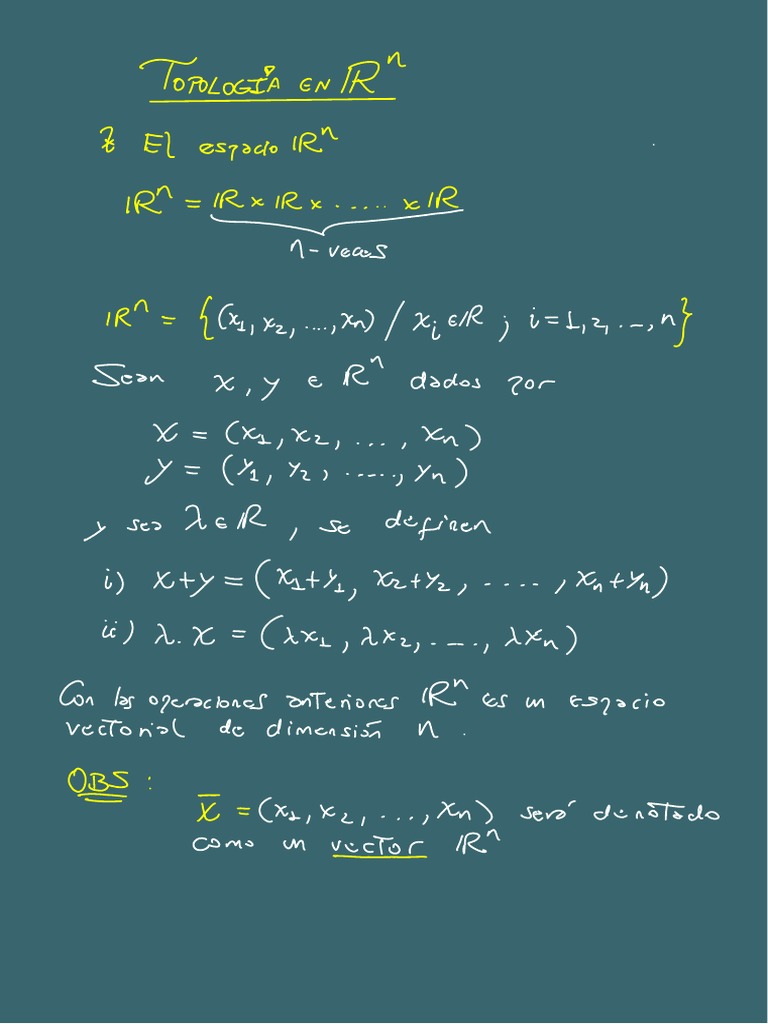 TOPOLOGÍA EN ℝⁿ
* El espacio ℝⁿ
ℝⁿ = ℝ × ℝ × ...... × ℝ
n-veces
ℝⁿ = {(x₁, x₂, ...., xₙ) / xᵢ ∈ ℝ ; i = 1, 2, ..., n}
Sean x, y ∈ ℝⁿ dados por
x = (x₁, x₂, ..., xₙ)
y = (y₁, y₂, ....., yₙ)
y sea λ ∈ ℝ, se definen
i) x+y = (x₁+y₁, x₂+y₂, ...., xₙ+yₙ)
ii) λ.x = (λx₁, λx₂, ..., λxₙ)
Con las operaciones anteriores ℝⁿ es un espacio
vectorial de dimensión n.
OBS:
x̄ = (x₁, x₂, ..., xₙ) será denotado
como un vector ℝⁿ